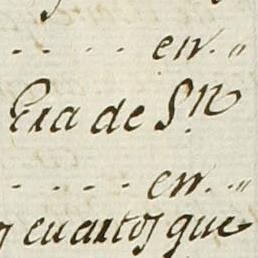 . . . . . en. "
Era de S.n
. . . . . en. . "
cuartos que